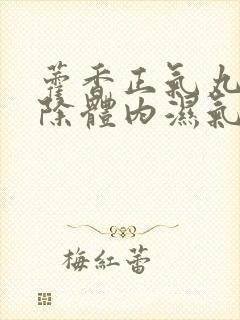 藿香正氣丸
除體內濕氣
梅紅蕾